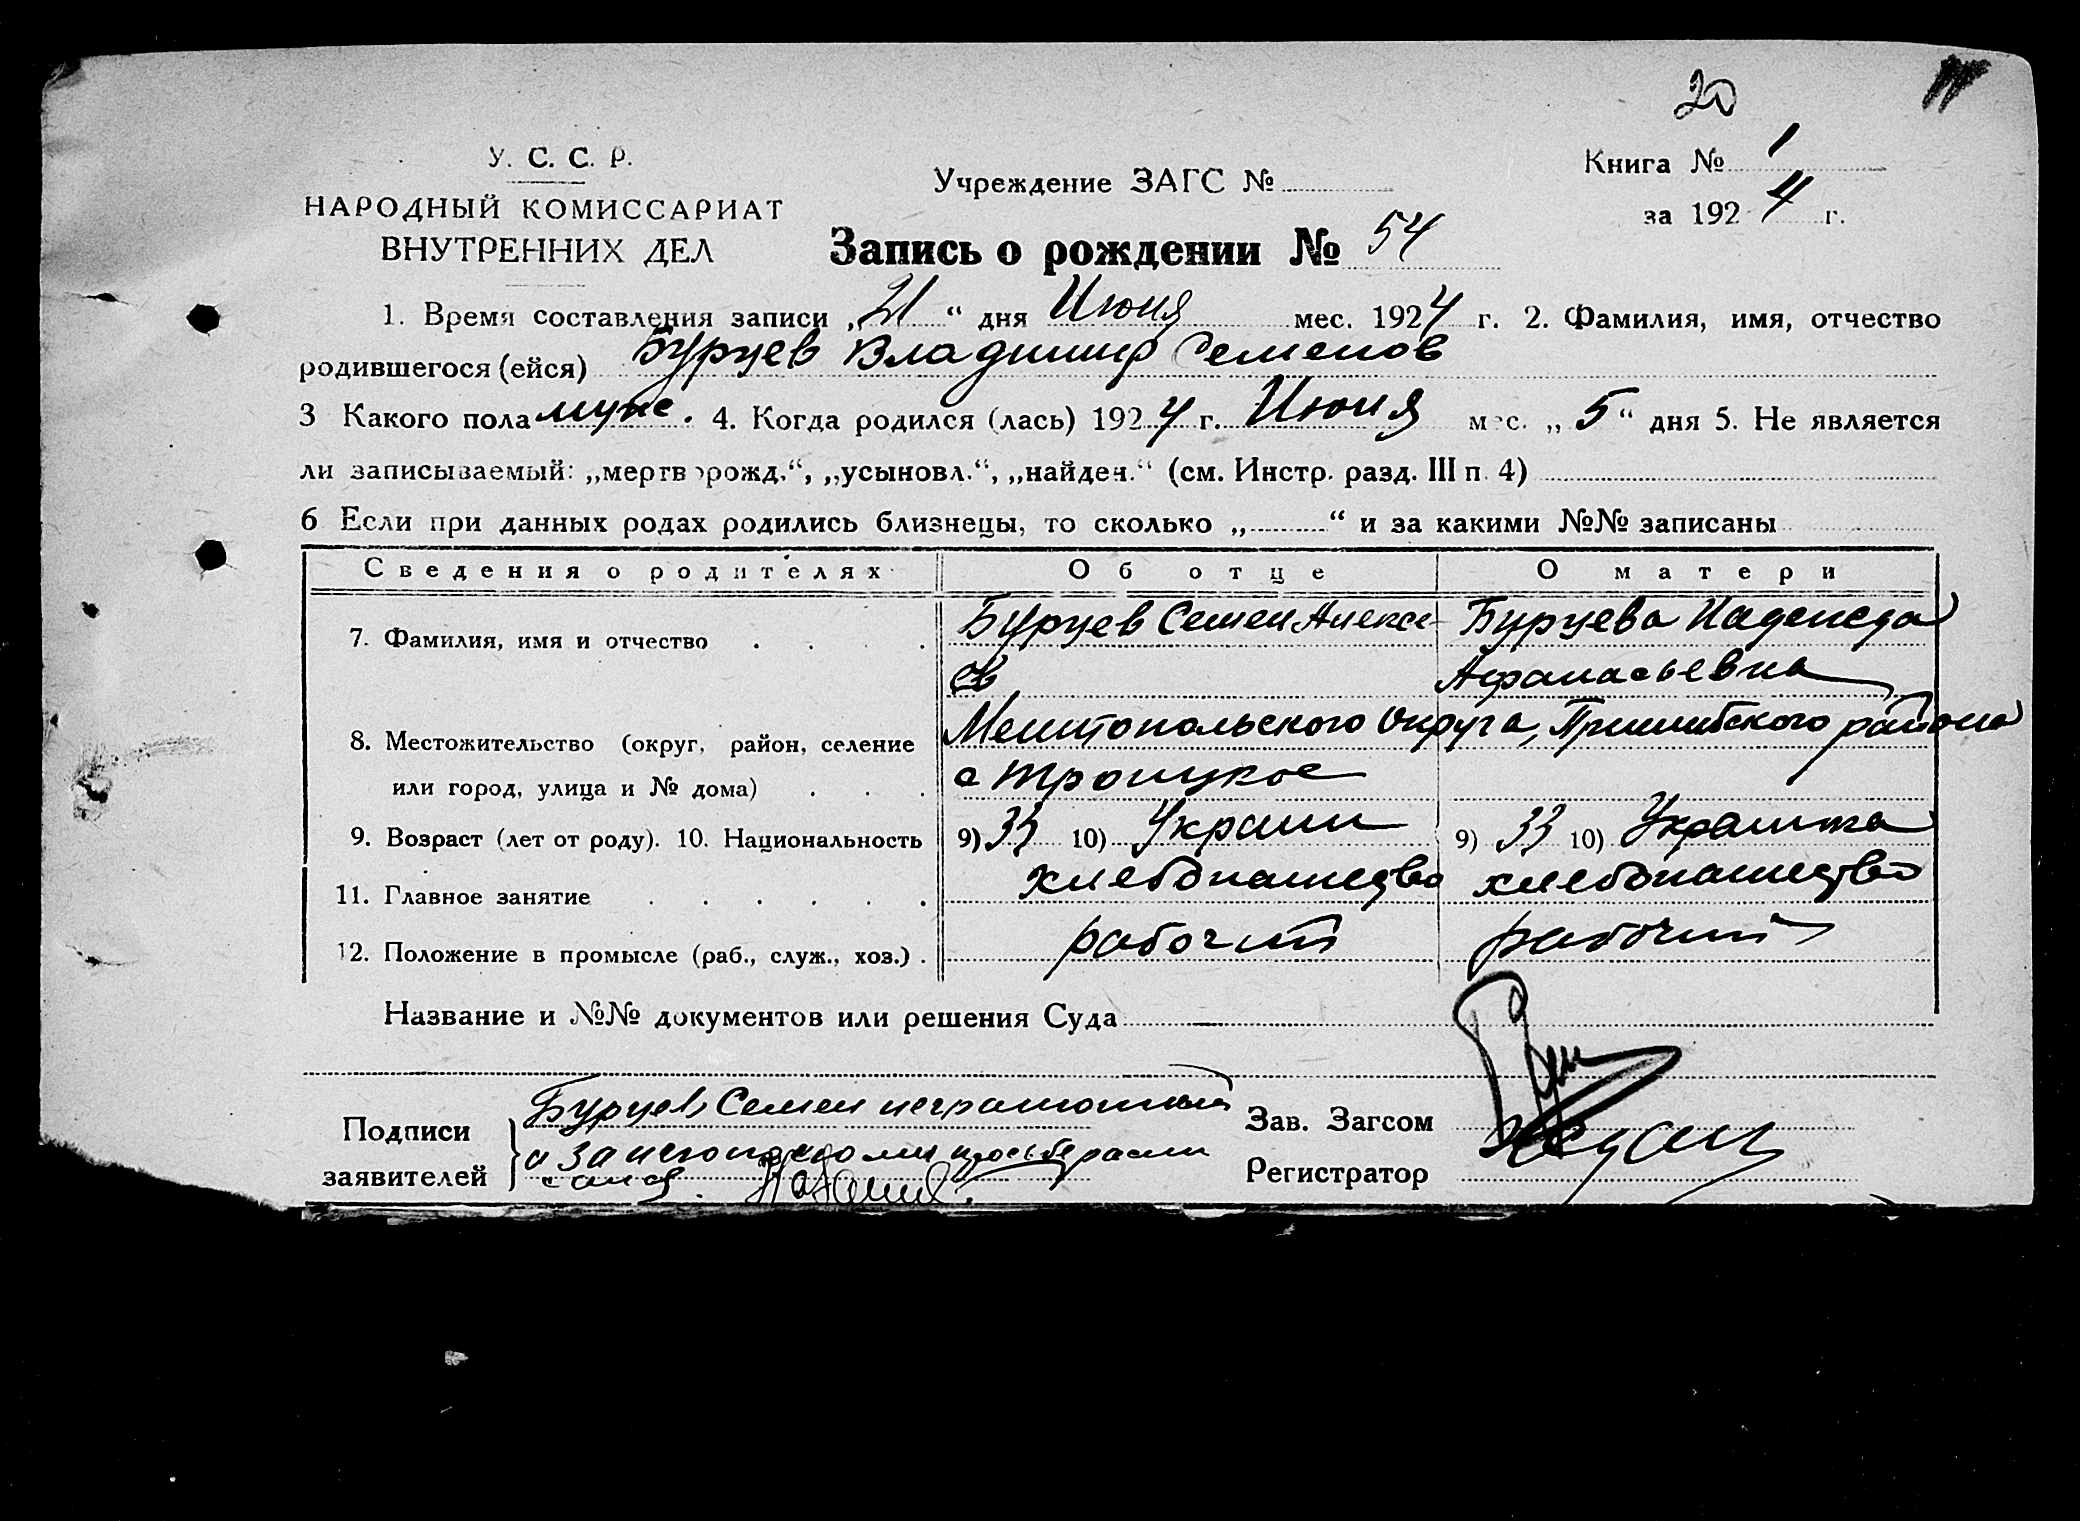 20
У. С. С. Р.
НАРОДНЫЙ КОМИССАРИАТ
ВНУТРЕННИХ ДЕЛ
Учреждение ЗАГС №
Книга № 1
за 1924 г.
Запись о рождении № 54
1. Время составления записи „21“ дня Июня мес. 1924 г. 2. Фамилия, имя, отчество
родившегося (ейся) Бурцев Владимир Семенов
3 Какого пола муж. 4. Когда родился (лась) 1924 г. Июня мес. „5“ дня 5. Не является
ли записываемый: „мертворожд.“, „усыновл.“, „найден.“ (см. Инстр. разд. III п. 4)
6 Если при данных родах родились близнецы, то сколько „ “ и за какими №№ записаны
Сведения о родителях Об отце О матери
7. Фамилия, имя и отчество Бурцев Семен Алексе- Бурцева Надежда
ев Афанасьевна
8. Местожительство (округ, район, селение Мелитопольского Округа, Пришибского района
или город, улица и № дома) с Троицкое
9. Возраст (лет от роду). 10. Национальность 9) 10) Украин 9) 33 10) Украинка
11. Главное занятие хлебопашество хлебопашество
12. Положение в промысле (раб., служ., хоз.) рабочий рабочий
Название и №№ документов или решения Суда
Подписи
заявителей
Бурцев Семен неграмотный
а за него по его просьбе
Зав. Загсом
Регистратор